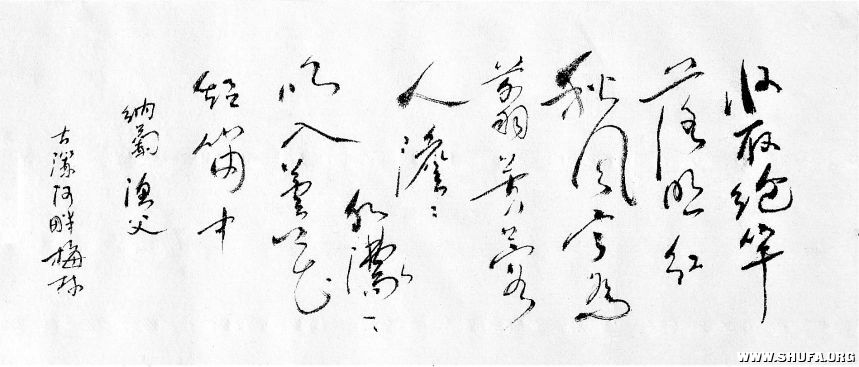 收却綸竿
落照红
秋风宁为
翦芙蓉
人澹〻
水濛〻
吹入蘆花
短笛中
纳蘭 渔父
古漯河畔梅林
WWW.SHUFA.ORG